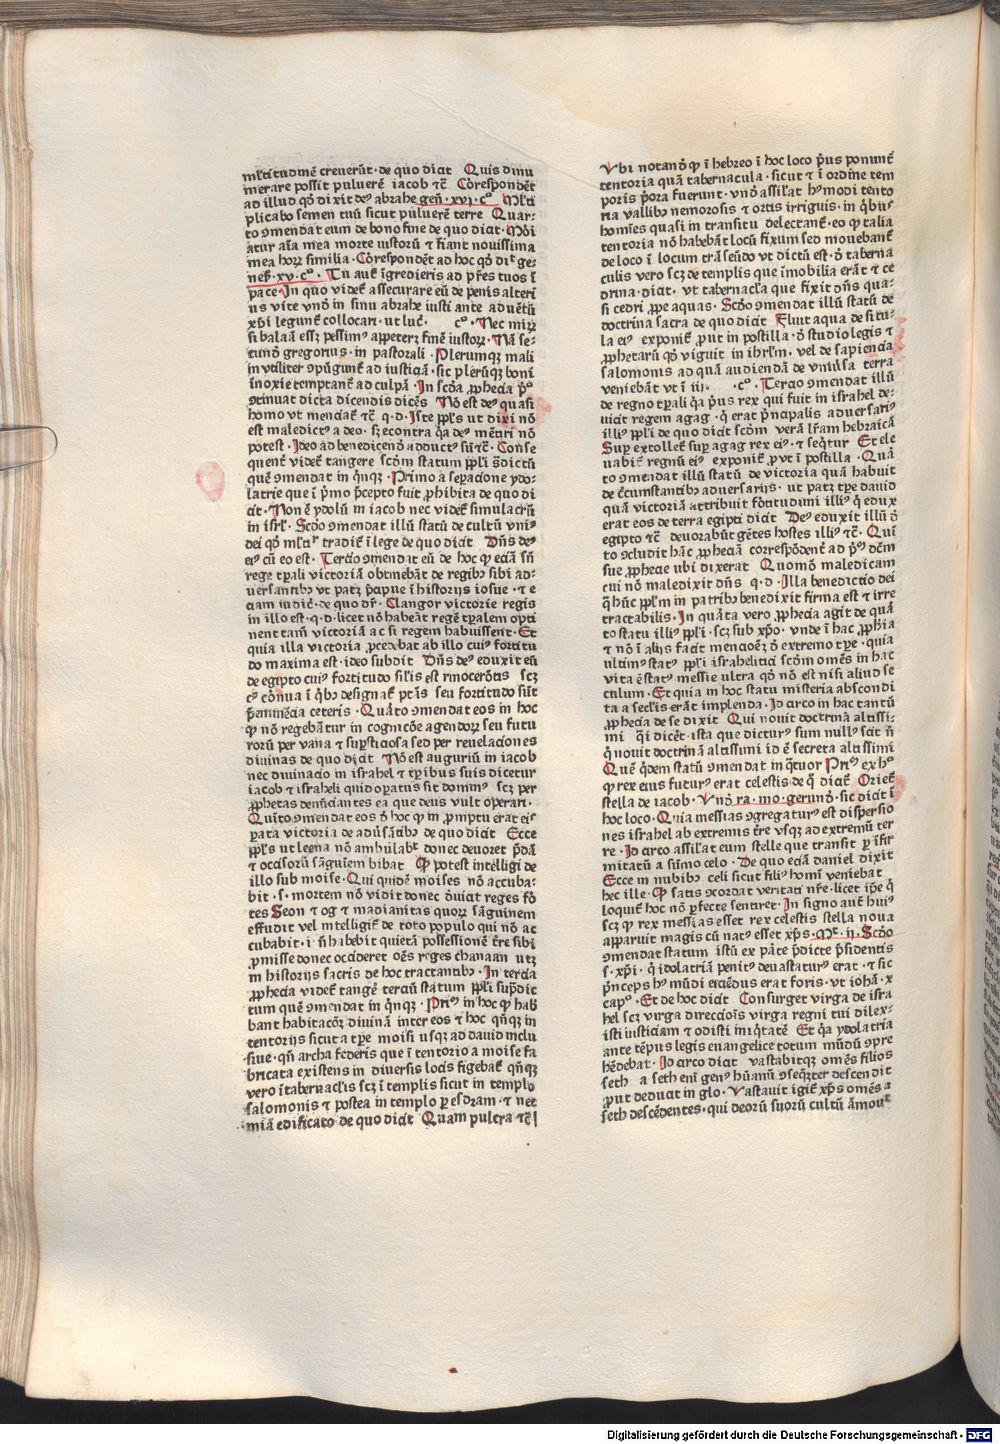 ml̃titudinē creuerūt· de quo dicit  Quis dinu
merare possit puluerē iacob ⁊c̄  Cōrespondēt
ad illud qd̓ dixit deꝰ abrahe geñ·xvi·c°·  Ml̃ti
plicabo semen tuū sicut puluerē terre  Quar-
to ꝯmendat eum de bono fine de quo dicit· Mōi
atur aīa mea morte iustorū ⁊ fiant nouissima
mea horꝝ similia· Cōrespondēt ad hoc qd̓ dr̄ ge-
neẜ·xv·c°·  Tu aut̄ īgredieris ad pr̄es tuos ī
pace· In quo videt̄ assecurare eū de penis alteri
us vite vnd̓ in sinu abrahe iusti ante aduētū
xp̄i legunt̄ collocari· ut luc̄·    c°· Nec mirꝝ
si balaā esset pessimꝰ appeterꝫ finē iustorꝝ· Nā se-
cund̓ gregoriuꝫ· in pastorali· Plerumqꝫ mali
inutiliter ꝯpūgunt̄ ad iusticiā· sic plerūqꝫ boni
inoxie temptant̄ ad culpā· In scd̓a ꝓphecia p̄°
ꝯtinuat dicta dicendis dicēs  Nō est deꝰ quasi
homo vt menciat̄ ⁊c̄ q·d· Iste pp̄ls ut dixi nō
est maledictꝰ a deo· sꝫ econtra q̄a deꝰ mētiri nō
potest· Ideo ad benedicend̓ adductꝰ su̅ ⁊c̄· Conse
quent̄ videt̄ tangere scd̓m statum pp̄li s̄dictū
quē ꝯmendat in qn̄qꝫ· Primo a seꝑacione ydo-
latrie que ī pmo p̄cepto fuit ꝓhibita de quo di
cit· Non ē ydolū in iacob nec videt̄ simulacrū
in isrl̄· Scd̓o ꝯmendat illū statū de cultū vniꝰ
dei qd̓ ml̃tiꝉ tradit̄ ī lege de quo dicit  Dn̄s deꝰ
eiꝰ cū eo est· Tercio ꝯmendat eū de hoc ꝙ eciā sn̄
rege tp̄ali victoriā obtinebāt de regibꝫ sibi ad-
uersantibꝫ vt patꝫ p̄ paꝑue ī historijs iosue· ⁊ e
ciam iudic̄· de quo dr̄· Clangor victorie regis
in illo est· q·d· licet nō habeāt regē tp̄alem opti
nent tam̄ victoriā ac si regem habuissent· Et
quia illa victoria ꝓcedebat ab illo cuiꝰ fortitu
do maxima est· ideo subdit  Dn̄s deꝰ eduxit eū
de egipto cuiꝰ fortitudo sil̄is est rinocerōtis  scꝫ
cꝰ cōnua ī qbꝫ designat̄ ptās seu fortitudo sūt
p̄eminēcia ceteris· Quāto ꝯmendat eos in hoc
ꝙ nō regebātur in cognicōe agendorꝝ seu futu
rorū per vana ⁊ suꝑsticiosa sed per reuelaciones
diuinas de quo dicit  Nō est auguriū in iacob
nec diuinacio in israhel ⁊ tꝑibus suis dicetur
iacob ⁊ israheli quid oꝑatus sit dominꝰ scꝫ per
ꝓphetas denūciantes ea que deus vult operari·
Quīto ꝯmendat eos d̓ hoc ꝙ in ꝓmptu erat eiꝰ
ꝑata victoria de adūsātibꝫ de quo dicit  Ecce
pp̄ls ut leena nō ambulabt̄ donec deuoret p̄dā
⁊ occisorū sāguīem bibat  Qp̄ potest intelligi de
illo sub moise· Qui quidē moises nō accuba-
bit· s· mortem nō vidit donec d̓uicit reges fō
tes Seon ⁊ og ⁊ madianitas quorꝝ sāguinem
effudit vel intelligit̄ de toto populo qui nō ac
cubabit· i· n̄ habebit quietā possessionē tr̄re sibi
ꝓmisse donec occideret oēs reges chanaan utꝫ
in historijs sacris de hoc tractantibꝫ· In tercia
ꝓphecia videt̄ tangē terciū statum pp̄li supdic
tum quē ꝯmendat in qn̄qꝫ· Priꝰ in hoc ꝙ habē
bant habitacōꝫ diuinā inter eos ⁊ hoc qn̄qꝫ in
tentorijs sicut a tꝑe moisi usqꝫ ad dauid inclu
siue· qn̄ archa federis que ī tentorio a moise fa
bricata existens in diuersis locis figebat̄ qn̄qꝫ
vero ī tabernacl̄is scꝫ ī templis sicut in templo
salomonis ⁊ postea in templo ꝑ esdram· ⁊ nee
miā edificato de quo dicit  Quam pulcra ⁊c̄
Vbi notand̓ ꝙ ī hebreo ī hoc loco pꝰus ponunt̄
tentoria quā tabernacula· sicut ⁊ ī ordine tem
poris pꝰora fuerunt· vnd̓ assil̄at hꝰmodi tento
ria vallibꝫ nemorosis ⁊ ortis irriguis· in qbuꝰ
homīes quasi in transitu delectant̄· eo ꝙ talia
tentoria nō habebāt locū fixum sed mouebant̄
de loco ī locum trāseūdo vt dictū est· d̓ taberna
culis vero scꝫ de templis que īmobilia erāt ⁊ ce
drina· dicit· vt tabernacl̄a que fixit dn̄s qua-
si cedri ꝓpe aquas· Scd̓o ꝯmendat illū statū de
doctrina sacra de quo dicit  Fluit aqua de situ-
la eiꝰ  exponit̄ ꝓut in postilla· d̓ studio legis ⁊
ꝓphetarū qd̓ viguit in ihrl̄m· vel de sapiencia
salomonis ad quā audiendā de vniūsa  terra
veniebāt vt ī iij·    ·c°· Tercio ꝯmendat illū
de regno tꝑali q̄a pꝰus rex qui fuit in israhel de-
uicit regem agag· q̄ erat p̄ncipalis aduersariꝰ
illiꝰ pp̄li de quo dicit scd̓m  verā lr̄am hebraicā
Suꝑ extollet̄ suꝑ agag rex eiꝰ· ⁊ seq̄tur  Et ele
uabit̄ regnū eiꝰ  exponit̄ ꝓvt ī postilla· Quā
to ꝯmendat illū statū de victoria quā habuit
de cꝰcumstantibꝫ aduersarijs· ut patꝫ tꝑe dauid
quā victoriā attribuit fortitudini illiꝰ q̄ edux
erat eos de terra egipti dicit  Deꝰ eduxit illū d̓
egipto ⁊c̄  deuorabūt gētes hostes illiꝰ ⁊c̄· Quī
to ꝯcludit hāc ꝓpheciā correspōdent̄ ad pꝰ dc̄m
sue ꝓphecie ubi dixerat  Quomō maledicam
cui nō maledixit dn̄s  q·d· Illa benedictio dei
q̄ hūc pp̄lm in patribꝫ benedixit firma est ⁊ irre
tractabilis· In quāta vero ꝓphecia agit de quā
to statu illiꝰ pp̄li· scꝫ sub xp̄o· vnde ī hac ꝓphīa
⁊ nō ī alijs facit mencioēꝫ d̓ extremo tꝑe· quia
ultimꝰ statꝰ pp̄li israhelitici scd̓m omēs in hac
vita ē statꝰ messie ultra qd̓ nō est nisi aliud se
culum· Et quia in hoc statu misteria abscondi
ta a secl̄is erāt implenda· Id̓arco in hac tantū
ꝓphecia de se dixit  Qui nouit doctrinā altissi-
mi  qi dicēt· ista que dicturꝰ sum nullꝰ scit n̄
q̄ nouit doctrinā altissimi id ē secreta altissimi
Quē q̄dem statū ꝯmendat in q̄tuor Priꝰ ex h°
ꝙ rex eius futurꝰ erat celestis de q̄ dicit̄  Oriet̄
stella de iacob· Vnd̓ ra· mo· gerund̓· sic dicit ī
hoc loco· Quia messias ꝯgregaturꝰ est dispersio
nes israhel ab extremis tr̄re vsqꝫ ad extremū ter
re· Id̓arco assil̄at eum stelle que transit ꝑ īfir
mitatū a sūmo celo· De quo eciā daniel dixit
Ecce in nubibꝫ  celi sicut filiꝰ homīs veniebat
hec ille· Qp̄ satis ꝯcordat veritati nr̄e· licet ip̄e q̄
loquit̄ hoc nō ꝑfecte sentiret· In signo aut̄ huiꝰ
scꝫ ꝙ rex messias esset rex celestis stella noua
apparuit magis cū natꝰ esset xp̄s· Mt̄·ij· Scd̓o
ꝯmendat statum  istū ex ꝑāte p̄dicte p̄sidentis
s· xp̄i· q̄ idolatriā penitꝰ deuastaturꝰ erat· ⁊ sic
p̄nceps hꝰ mūdi eiciēdus erat foris· vt ioh̄ā· x
cap°· Et de hoc dicit  Consurget virga de isra
hel scꝫ virga direcciōis virga regni tui dilex-
isti iusticiam ⁊ odisti iniq̄tatē  Et q̄a ydolatria
ante tēpus legis euangelice totum mūdū ꝯpre
hēdebat· Id̓arco dicit  vastabitqꝫ omēs filios
seth  a seth enī genꝰ hūanū ꝯseqn̄ter descendit
ꝓut deducit in glo· Vastauit igit̄ xp̄s omēs a
seth descēdentes· qui deorū suorū cultū āmout̄
Digitalisierung gefördert durch die Deutsche Forschungsgemeinschaft - DFG